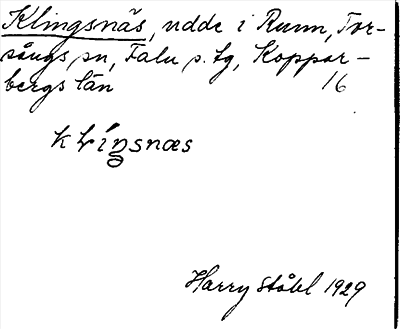 Klingsnäs, udde i Runn, Tor-
sångs sn, Falu s. tg, Koppar-
bergs län 16
klingsnæs
Harry Ståhl 1929